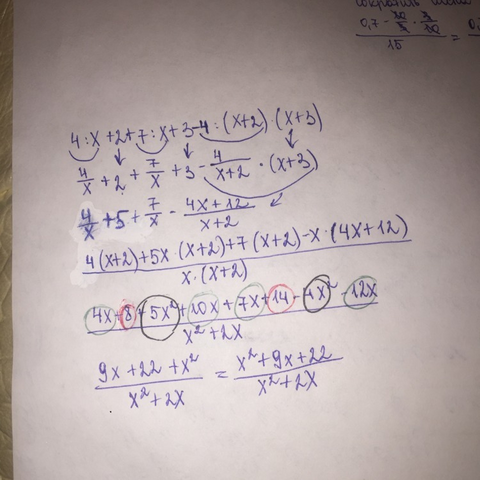 сократить
0,7 - 10/3 · 3/10 / 15 = 0,
4:x+2+7:x+3-4:(x+2)·(x+3)
4/x + 2 + 7/x + 3 - 4/(x+2) · (x+3)
4/x + 5 + 7/x - (4x+12)/(x+2)
4(x+2)+5x·(x+2)+7(x+2)-x·(4x+12)
x·(x+2)
4x+8+5x²+10x+7x+14-4x²-12x
x²+2x
9x+22+x² / x²+2x = x²+9x+22 / x²+2x